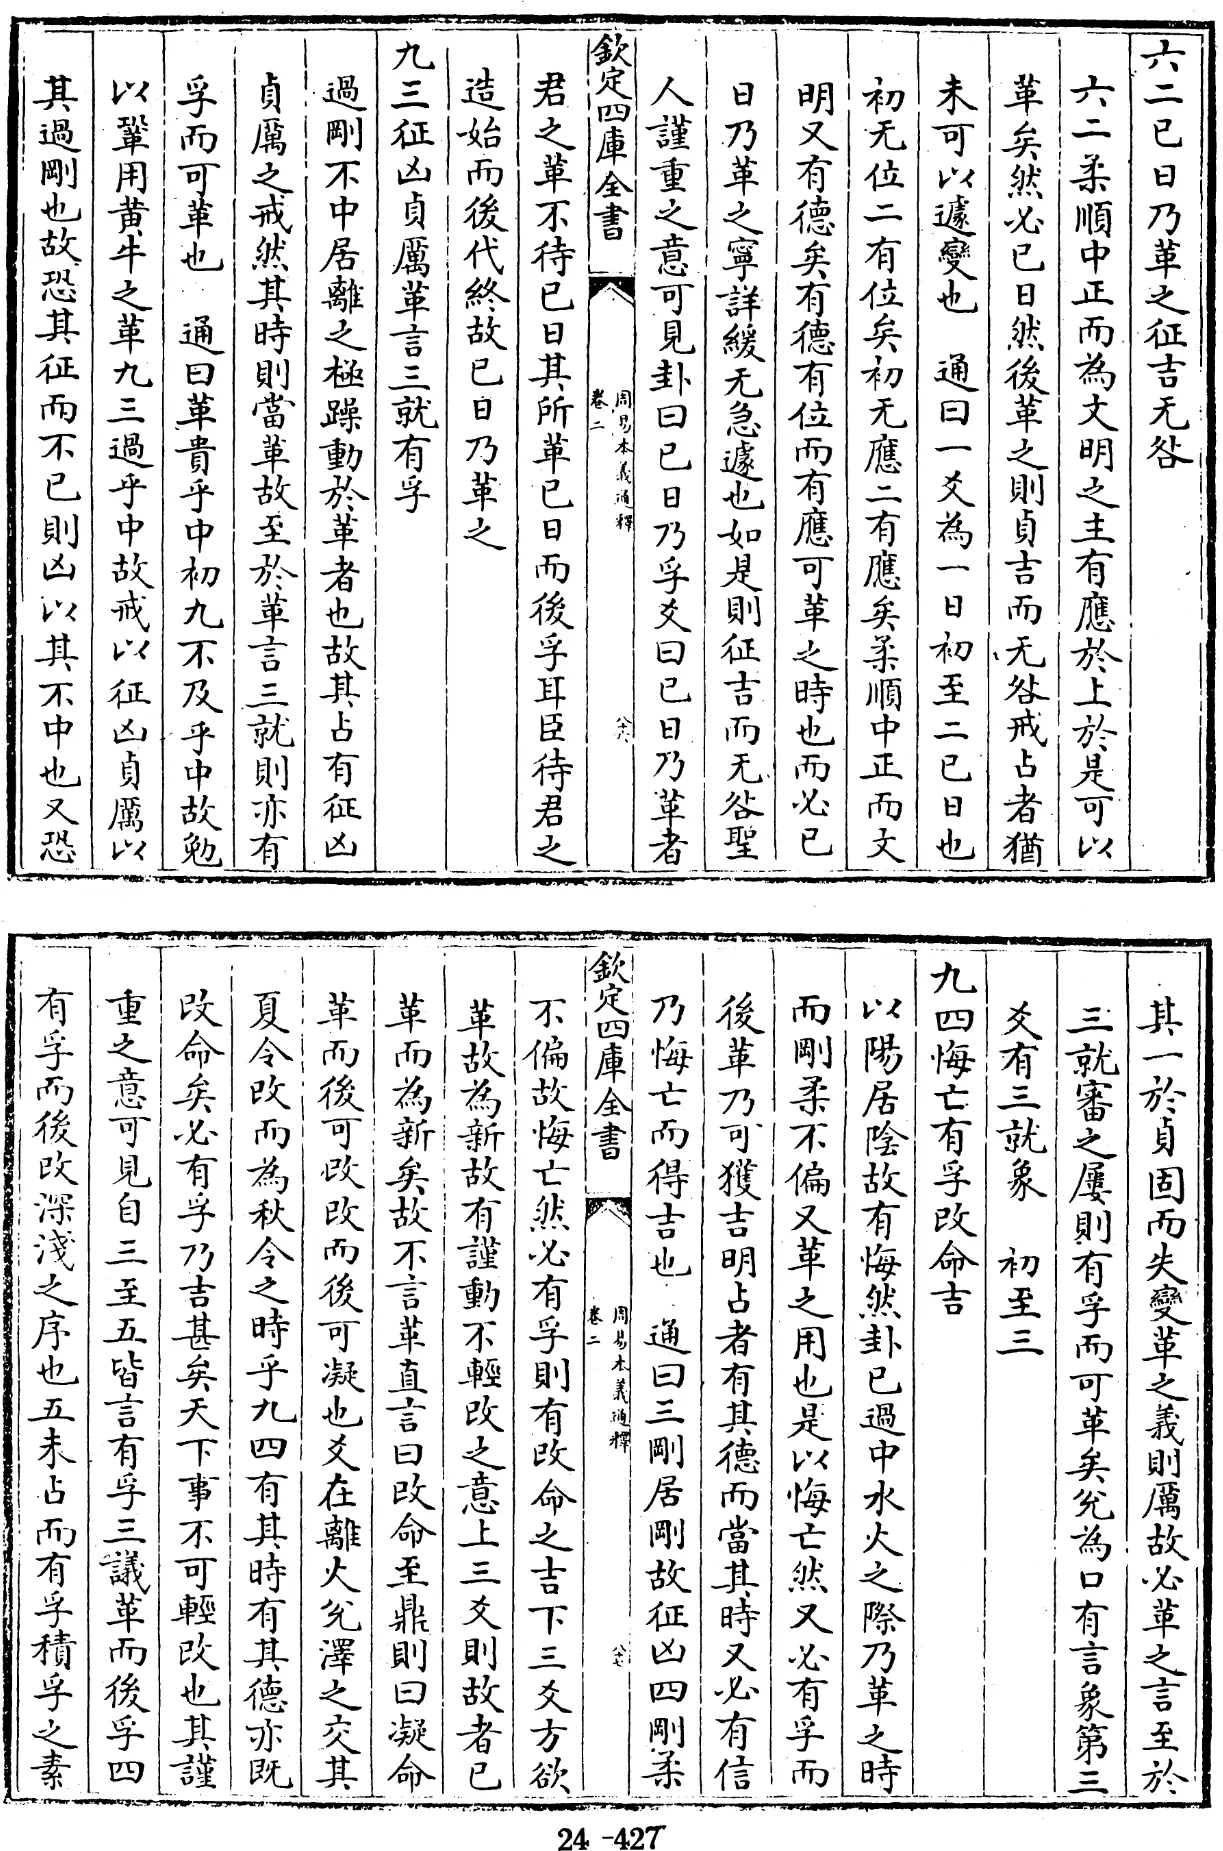 六二已日乃革之征吉无咎
六二柔順中正而為文明之主有應於上於是可以
革矣然必已日然後革之則貞吉而无咎戒占者猶
未可以遽變也 通曰一爻為一日初至二已日也
初无位二有位矣初无應二有應矣柔順中正而文
明又有德矣有德有位而有應可革之時也而必已
日乃革之寧詳緩无急遽也如是則征吉而无咎聖
人謹重之意可見卦曰已日乃孚爻曰已日乃革者
欽定四庫全書
周易本義通釋
卷二
八十六
君之革不待已日其所革已日而後孚耳臣待君之
造始而後代終故已日乃革之
九三征凶貞厲革言三就有孚
過剛不中居離之極躁動於革者也故其占有征凶
貞厲之戒然其時則當革故至於革言三就則亦有
孚而可革也 通曰革貴乎中初九不及乎中故勉
以鞏用黄牛之革九三過乎中故戒以征凶貞厲以
其過剛也故恐其征而不已則凶以其不中也又恐
其一於貞固而失變革之義則厲故必革之言至於
三就審之屢則有孚而可革矣兊為口有言象第三
爻有三就象 初至三
九四悔亡有孚改命吉
以陽居陰故有悔然卦已過中水火之際乃革之時
而剛柔不偏又革之用也是以悔亡然又必有孚而
後革乃可獲吉明占者有其德而當其時又必有信
乃悔亡而得吉也 通曰三剛居剛故征凶四剛柔
欽定四庫全書
周易本義通釋
卷二
八十七
不偏故悔亡然必有孚則有改命之吉下三爻方欲
革故為新故有謹動不輕改之意上三爻則故者已
革而為新矣故不言革直言曰改命至鼎則曰凝命
革而後可改改而後可凝也爻在離火兊澤之交其
夏令改而為秋令之時乎九四有其時有其德亦既
改命矣必有孚乃吉甚矣天下事不可輕改也其謹
重之意可見自三至五皆言有孚三議革而後孚四
有孚而後改深淺之序也五未占而有孚積孚之素
24-427